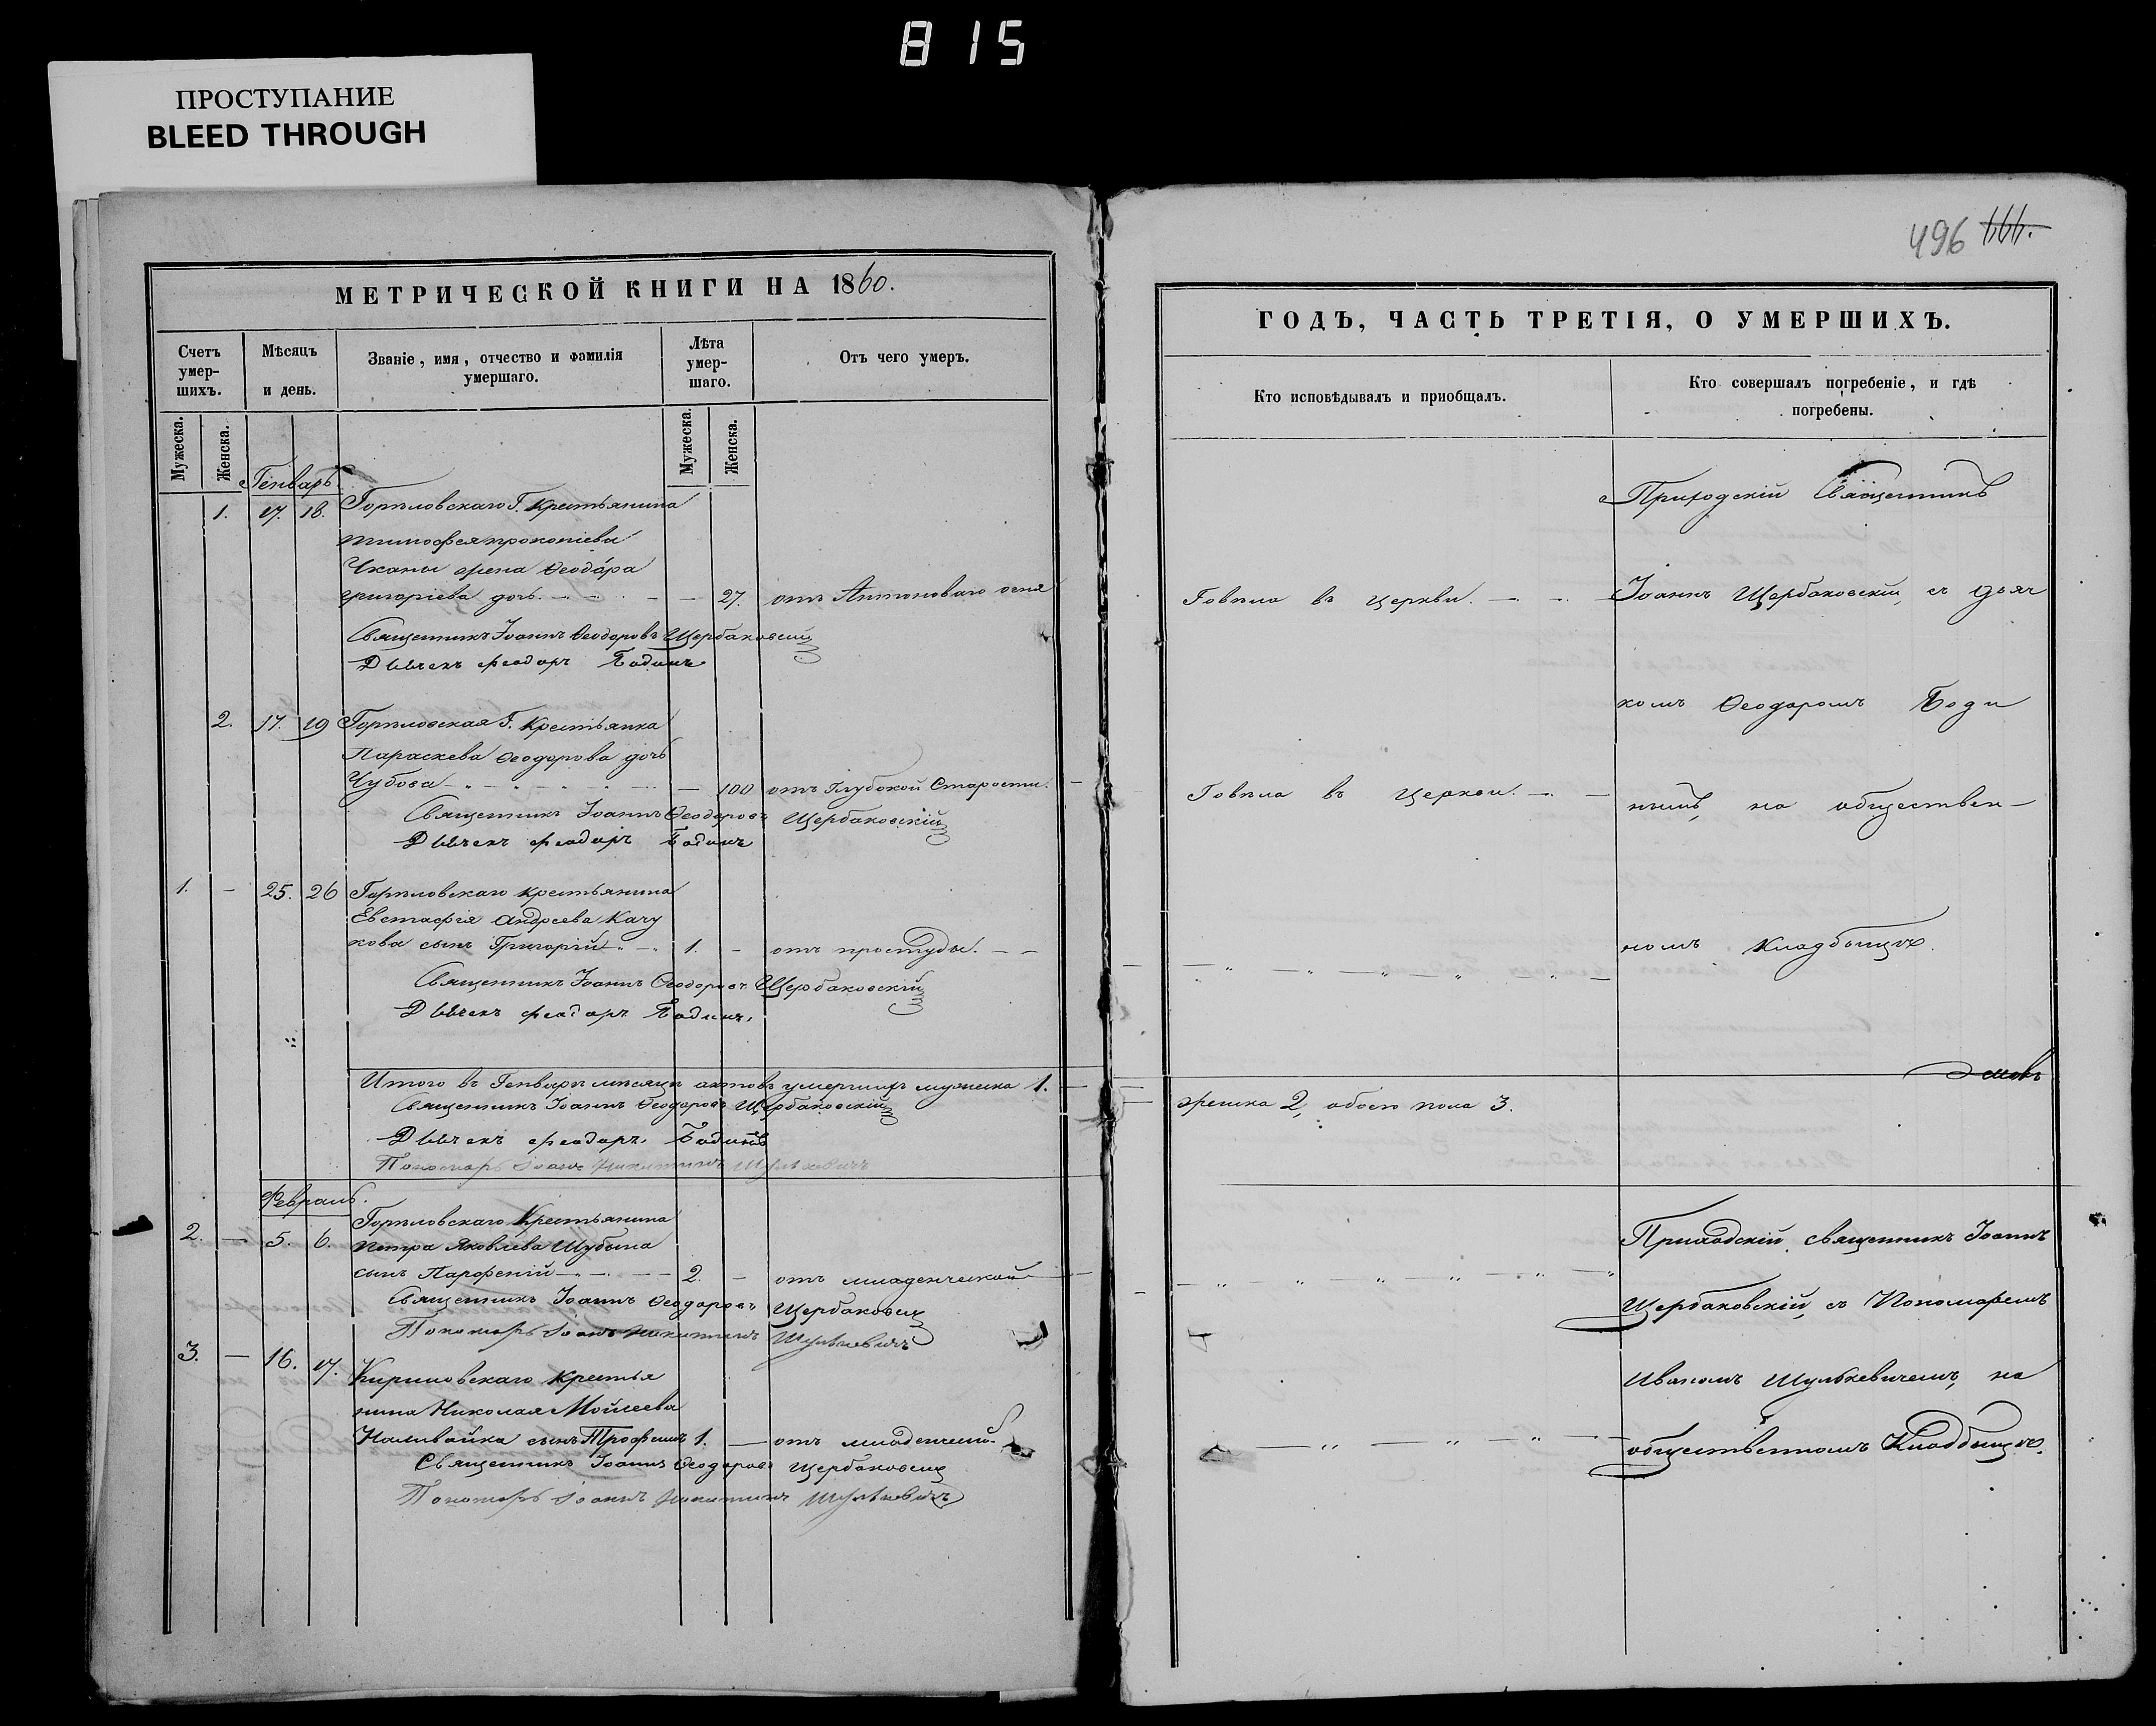 815
ПРОСТУПАНИЕ
BLEED THROUGH
496
МЕТРИЧЕСКОЙ КНИГИ НА 1860.
Счетъ умер-шихъ.
Мѣсяцъ и день.
Званіе, имя, отчество и фамилія умершаго.
Лѣта умер-шаго.
Отъ чего умеръ.
Мужеска.
Женска.
Мужеска.
Женска.
Генварь
1. 17. 18. Горѣловскаго Г. Крестьянина
Тимофея прокопіева
жена Ѳеодора
григоріева дочь. 27. отъ Антоноваго огня
Священникъ Іоаннъ Ѳеодоровъ Щербаковскій
Дьячекъ феодоръ Бодинъ
2. 17. 19 Горѣловская Г. Крестьянка
Параскева Ѳеодорова дочь
Чубова 100 отъ Глубокой Старости.
Священникъ Іоаннъ Ѳеодоровъ Щербаковскій
Дьячекъ феодоръ Бодинъ
1. - 25. 26 Горѣловскаго крестьянина
Евстафія Андреева Качу
кова сынъ Григорій 1. - отъ простуды.
Священникъ Іоаннъ Ѳеодоровъ Щербаковскій
Дьячекъ феодоръ Бодинъ.
Итого въ Генварѣ мѣсяцѣ актовъ умершихъ мужеска 1.
Священникъ Іоаннъ Ѳеодоровъ Щербаковскій
Дьячекъ феодоръ. Бодинъ
Пономарь Іоанъ Никитинъ Шулькевичъ
Февраль.
2. - 5. 6. Горѣловскаго Крестьянина
Петра Яковлева Шубина
сынъ Парфеній 2. - отъ младенческой
Священникъ Іоаннъ Ѳеодоровъ Щербаковскій
Пономарь Іоанъ Никитинъ Шулькевичъ
3. - 16. 17. Кириловскаго Крестья
нина Николая Мойсеева
Наливайка сынъ Трофимъ 1. - отъ младенческой
Священникъ Іоаннъ Ѳеодоровъ Щербаковскій
Пономарь Іоанъ Никитинъ Шулькевичъ
ГОДЪ, ЧАСТЬ ТРЕТІЯ, О УМЕРШИХЪ.
Кто исповѣдывалъ и пріобщалъ.
Кто совершалъ погребеніе, и гдѣ погребены.
Приходскій Священникъ
Говѣла въ церкви. Іоаннъ Щербаковскій, съ дьяч
комъ Ѳеодоромъ Боди
Говѣла въ церкви. нымъ, на обществен-
номъ кладбищѣ.
женска 2, обоего пола 3.
Приходскій священникъ Іоаннъ
Щербаковскій, съ Пономаремъ
Иваномъ Шулькевичемъ, на
общественномъ Кладбищѣ.